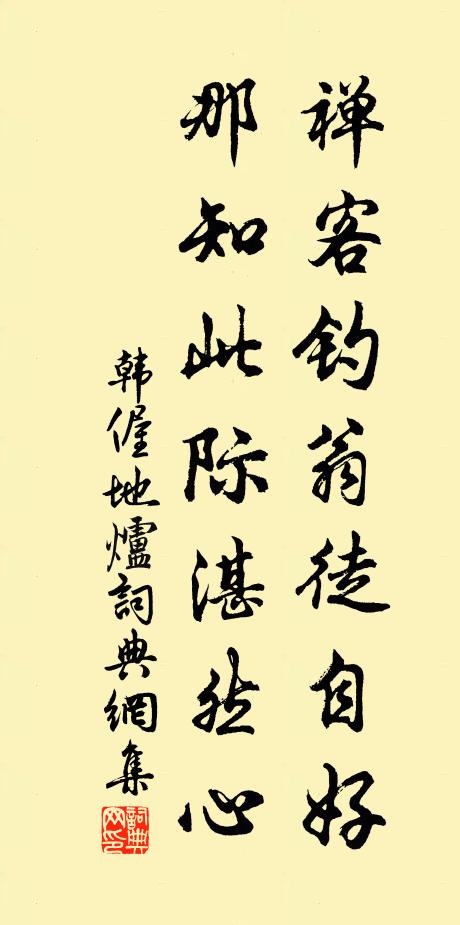 禅客钓翁徒自好
那知此际湛然心
韩偓地爐詞典網集
詞典網印